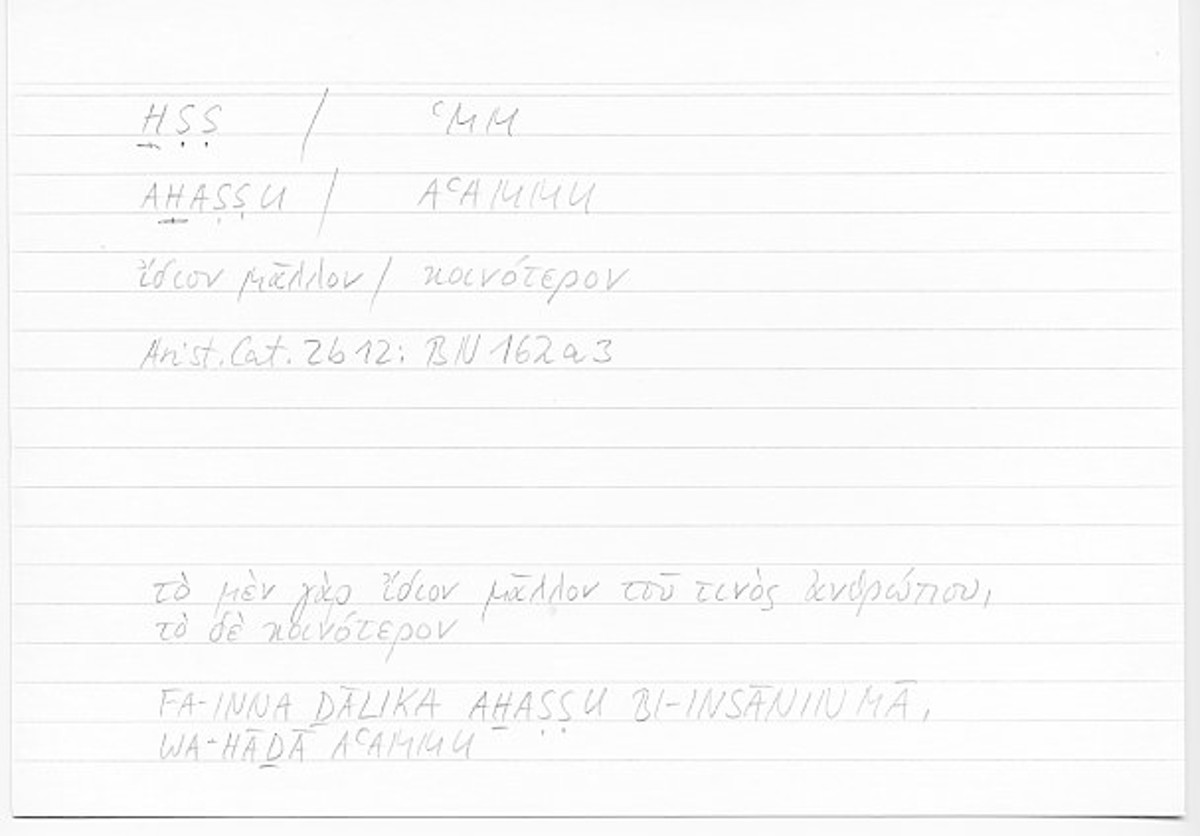 H̱ṢṢ / ʿMM
AH̱AṢṢU / AʿAMMU
ἴδιον μᾶλλον / κοινότερον
Arist. Cat. 2b12: BN 162a3
τὸ μὲν γὰρ ἴδιον μᾶλλον τοῦ τινὸς ἀνθρώπου,
τὸ δὲ κοινότερον
FA-INNA ḎĀLIKA AH̱AṢṢU BI-INSĀNIN MĀ,
WA-HĀḎĀ AʿAMMU